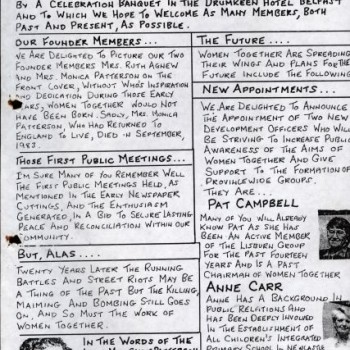 BY A CELEBRATION BANQUET IN THE DRUMKEEN HOTEL BELFAST
AND TO WHICH WE HOPE TO WELCOME AS MANY MEMBERS, BOTH
PAST AND PRESENT, AS POSSIBLE.
OUR FOUNDER MEMBERS...
WE ARE DELIGTED TO PICTURE OUR TWO
FOUNDER MEMBERS MRS. RUTH AGNEW
AND MRS. MONICA PATTERSON ON THE
FRONT COVER, WITHOUT WHO'S INSPIRATION
AND DEDICATION DURING THOSE EARLY
YEARS, WOMEN TOGETHER WOULD NOT
HAVE BEEN BORN. SADLY, MRS. MONICA
PATTERSON, WHO HAD RETURNED TO
ENGLAND TO LIVE, DIED IN SEPTEMBER,
THOSE FIRST PUBLIC MEETINGS...
I'M SURE MANY OF YOU REMEMBER WELL
THE FIRST PUBLIC MEETINGS HELD, AS
MENTIONED IN THE EARLY NEWSPAPER
CUTTINGS, AND THE ENTHUSIASM
GENERATED, IN A BID TO SECURE LASTING
PEACE AND RECONCILIATION WITHIN OUR
COMMUNITY.
BUT, ALAS....
TWENTY YEARS LATER THE RUNNING
BATTLES AND STREET RIOTS MAY BE
A THING OF THE PAST BUT THE KILLING,
MAIMING AND BOMBING STILL GOES
ON, AND SO MUST THE WORK OF
WOMEN TOGETHER.
IN THE WORDS OF THE
THE FUTURE....
WOMEN TOGETHER ARE SPREADING
THEIR WINGS AND PLANS FOR THE
FUTURE INCLUDE THE FOLLOWING
NEW APPOINTMENTS...
WE ARE DELIGHTED TO ANNOUNCE
THE APPOINTMENT OF TWO NEW
DEVELOPMENT OFFICERS WHO WILL
BE STRIVING TO INCREASE PUBLIC
AWARENESS OF THE AIMS OF
WOMEN TOGETHER AND GIVE
SUPPORT TO THE FORMATION OF
PROVINCEWIDE GROUPS.
THEY ARE...
PAT CAMPBELL
MANY OF YOU WILL ALREADY
KNOW PAT AS SHE HAS
BEEN AN ACTIVE MEMBER
OF THE LISBURN GROUP
FOR THE PAST FOURTEEN
YEARS AND IS A PAST
CHAIRMAN OF WOMEN TOGETHER
ANNE CARR
ANNE HAS A BACKGROUND IN
PUBLIC RELATIONS AND
HAS BEEN DEEPLY INVOLVED
IN THE ESTABLISHMENT OF
ALL CHILDREN'S INTEGRATED
PRIMARY SCHOOL IN NEWCASTLE